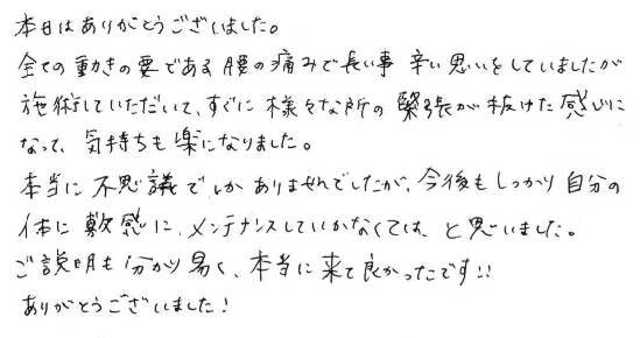 本日はありがとうございました。
全ての動きの要である腰の痛みで長い事 辛い思いをしていましたが
施術していただいて、すぐに様々な所の緊張が抜けた感じに
なって、気持ちも楽になりました。
本当に不思議でしかありませんでしたが、今後もしっかり自分の
体に敏感に、メンテナンスしていかなくては、と思いました。
ご説明も分かり易く、本当に来て良かったです!!
ありがとうございました!